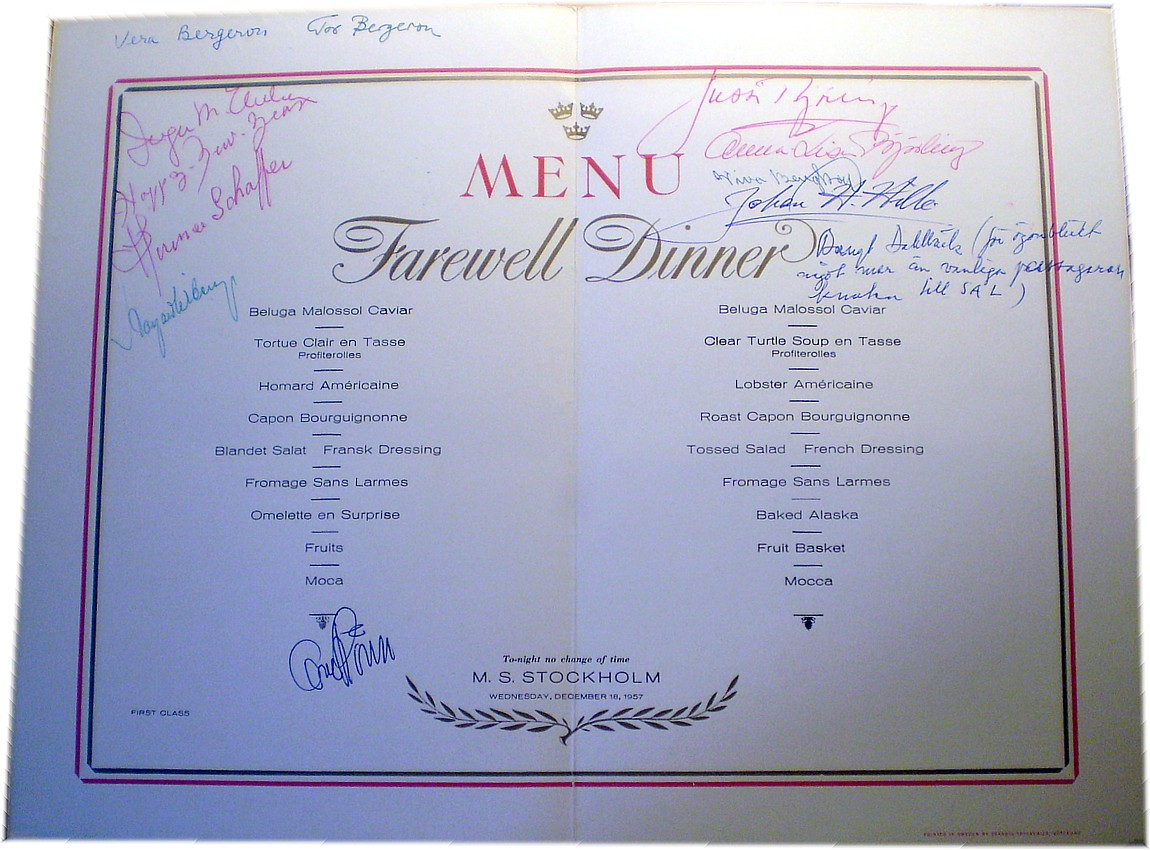 Vera Bergeron Tor Bergeron
Happy New-Year
Schaffer
Anna-Lisa Björling
Johan H.
(för ögonblicket
något mer än vanliga
till SAL)
MENU
Farewell Dinner
Beluga Malossol Caviar
Tortue Clair en Tasse
Profiterolles
Homard Américaine
Capon Bourguignonne
Blandet Salat Fransk Dressing
Fromage Sans Larmes
Omelette en Surprise
Fruits
Moca
Beluga Malossol Caviar
Clear Turtle Soup en Tasse
Profiterolles
Lobster Américaine
Roast Capon Bourguignonne
Tossed Salad French Dressing
Fromage Sans Larmes
Baked Alaska
Fruit Basket
Mocca
To-night no change of time
M. S. STOCKHOLM
WEDNESDAY, DECEMBER 18, 1957
FIRST CLASS
PRINTED IN SWEDEN BY